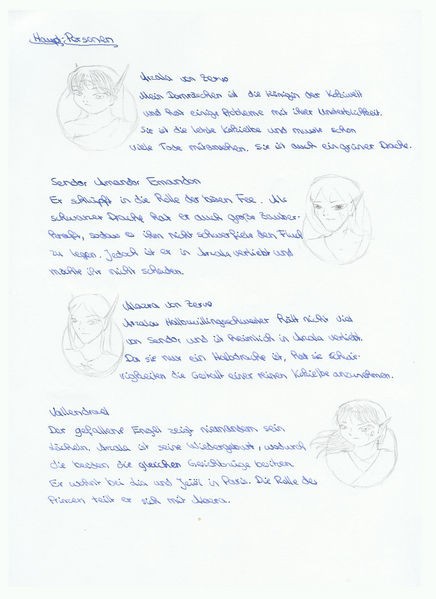 Haupt-Personen
Azala von Zervo
Mein Dornröschen ist die Königin der
und hat einige Probleme mit ihrer Unsterblichkeit.
Sie ist die letzte und musste schon
viele Tode mitansehen. Sie ist auch ein grüner Drache.
Sendor Amandor Emandon
Er schlüpft in die Rolle der bösen Fee. Als
schwarzer Drache hat er auch große Zauber-
kraft, sodass es ihm nicht schwerfiele den Fluch
zu legen. Jedoch ist er in Azala verliebt und
möchte ihr nicht schaden.
von Zervo
Azalas hält nicht viel
von Sendor, und ist heimlich in Azala verliebt.
Da sie nur ein Halbdrache ist, hat sie Schwie-
rigkeiten die Gestalt einer reinen anzunehmen.
Der gefallene Engel zeigt niemandem sein
Lächeln. Azala ist seine Wiedergeburt, wodurch
die beiden die gleichen Gesichtszüge besitzen.
Er wohnt bei und in Paris. Die Rolle des
Prinzen teilt er sich mit